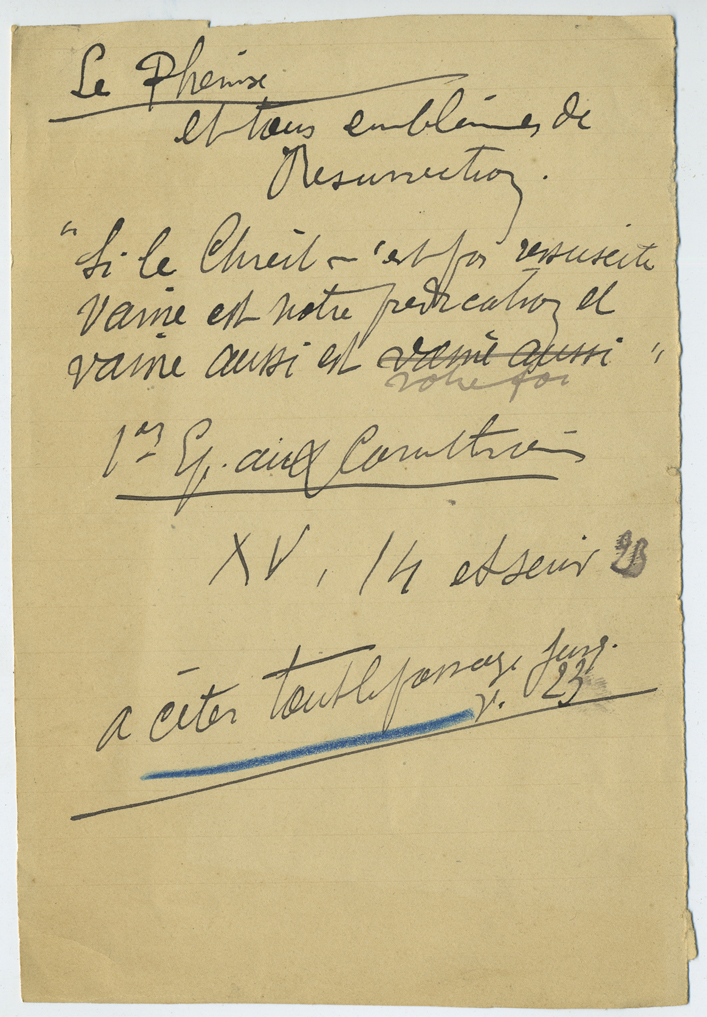 Le Phénix
et tous emblèmes de
Résurrection.
"Si le Christ n'est pas ressuscité
vaine est notre prédication et
vaine aussi est vaine aussi "
votre foi
1re Ep. aux Corinthiens
XV, 14 et suiv 23
à citer tout le passage jusq.
v. 23